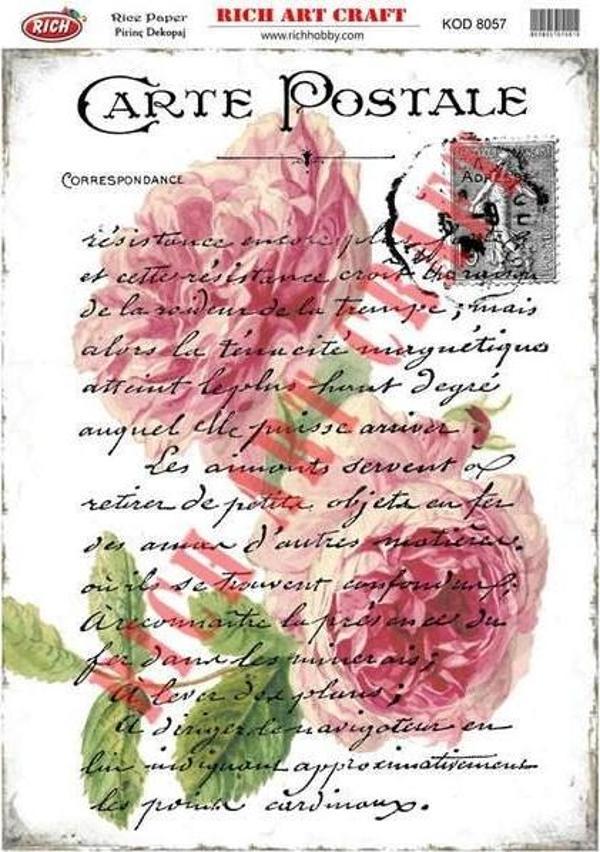 RICH
Rice Paper
Pirinç Dekopaj
RICH ART CRAFT
www.richhobby.com
KOD 8057
CARTE POSTALE
CORRESPONDANCE
ADRESSE
résistance encore plus
et cette résistance croît
de la roideur de la trempe ; mais
alors la ténacité magnétique
atteint le plus haut degré
auquel elle puisse arriver.
Les aimants servent à
retirer de petits objets en fer
des amas d'autres matières.
où ils se trouvent confondus ;
À reconnaître la présence du
fer dans les minerais ;
À lever des plans ;
À diriger le navigateur en
lui indiquant approximativement
les points cardinaux.
RICH ART CRAFT